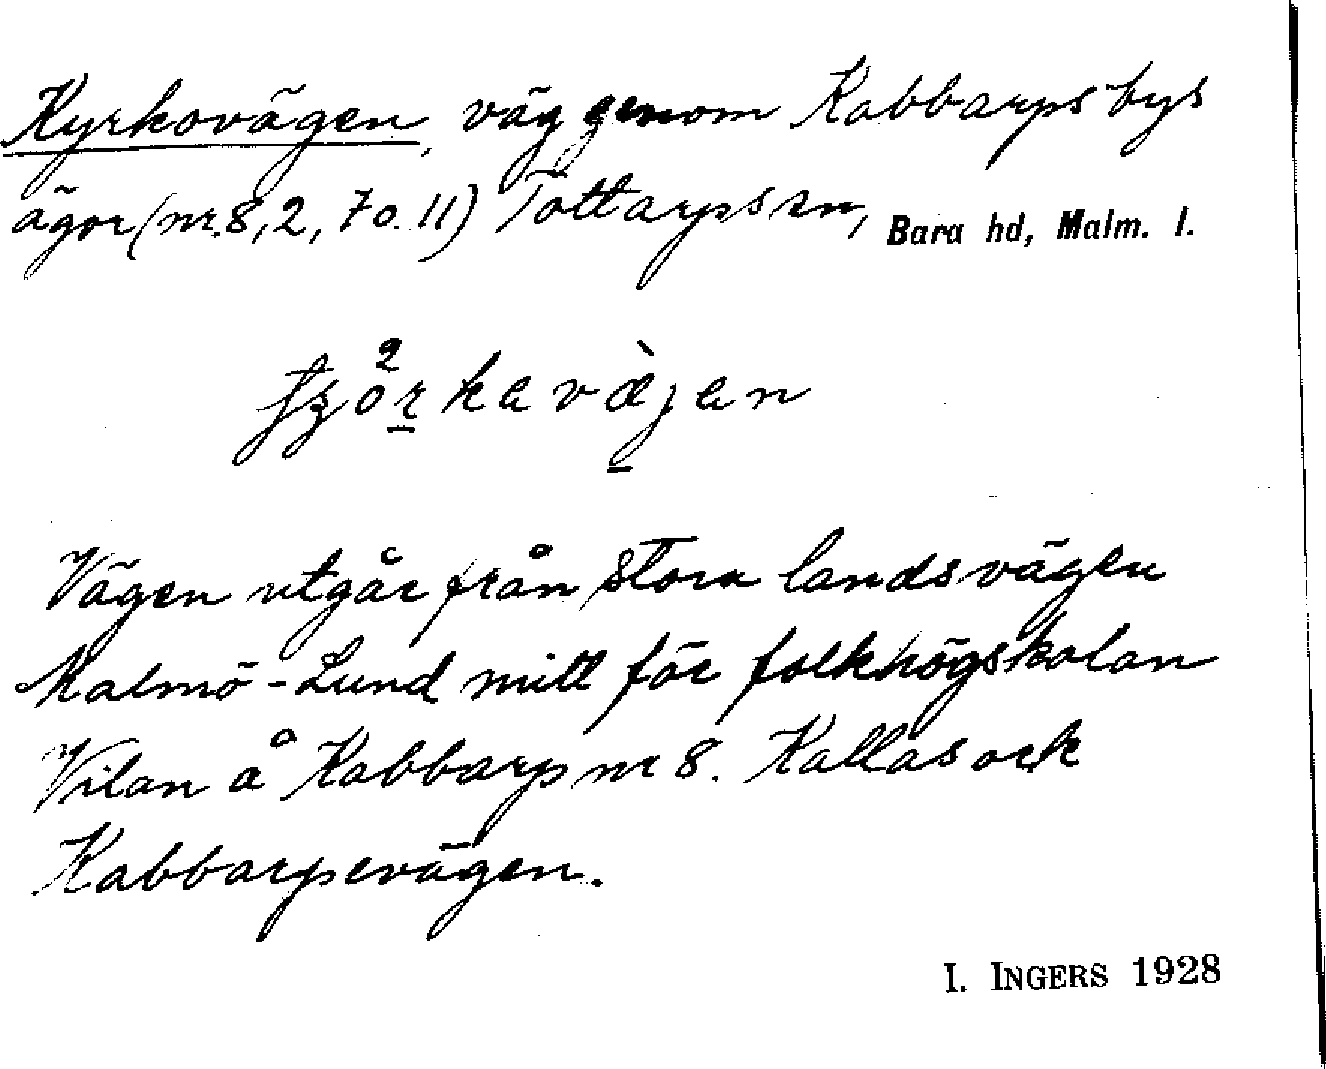 Kyrkovägen, väg genom Kabbarps bys
ägor (nr. 8, 2, 7 o. 11) Tottarps sn, Bara hd, Malm. l.
Vägen utgår från stora landsvägen
Malmö-Lund mitt för folkhögskolan
Vilan å Kabbarp nr 8. Kallas ock
Kabbarpsvägen.
I. INGERS 1928